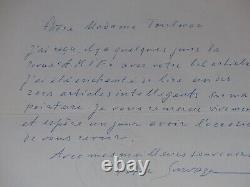 Chère Madame Toulouse
j'ai reçu il y a quelques jours la
revue A.R.I.F. avec votre bel article
j'ai été enchanté de lire un
articles intelligents sur ma
peinture je vous remercie vivement
et espère un jour avoir l'occasion
de vous revoir.
Avec mes meilleurs souvenirs